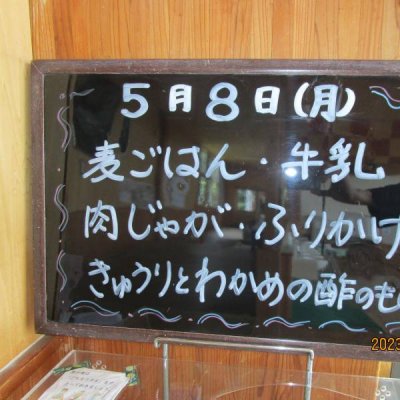 5月8日(月)
麦ごはん・牛乳
肉じゃが・ふりかけ
きゅうりとわかめの酢のも
2023